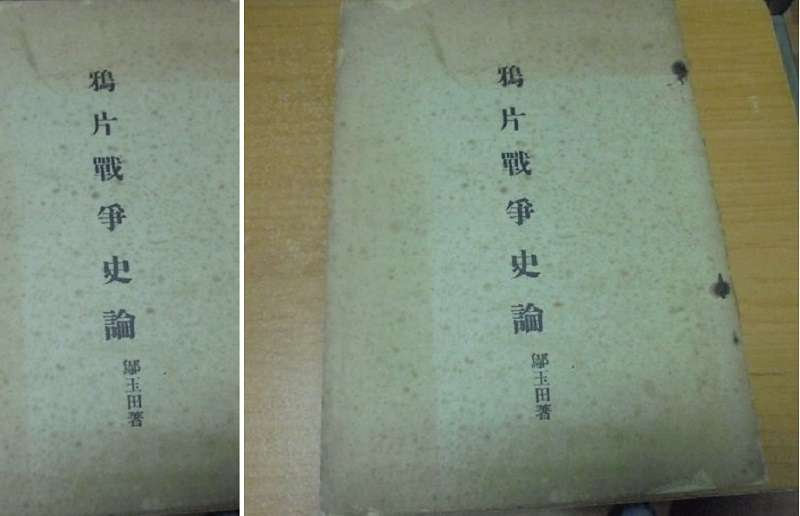 鴉片戰爭史論
玉田著
鴉片戰爭史論
玉田著